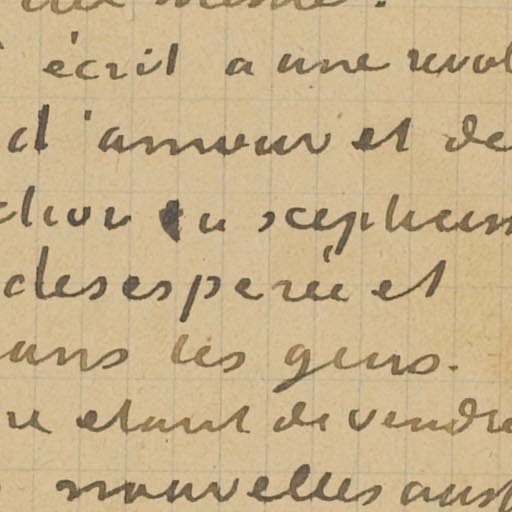 écrit a une revol
d'amour et de
du scepticism
desesperée et
ans les gens.
re etant de vendre
nouvelles auss